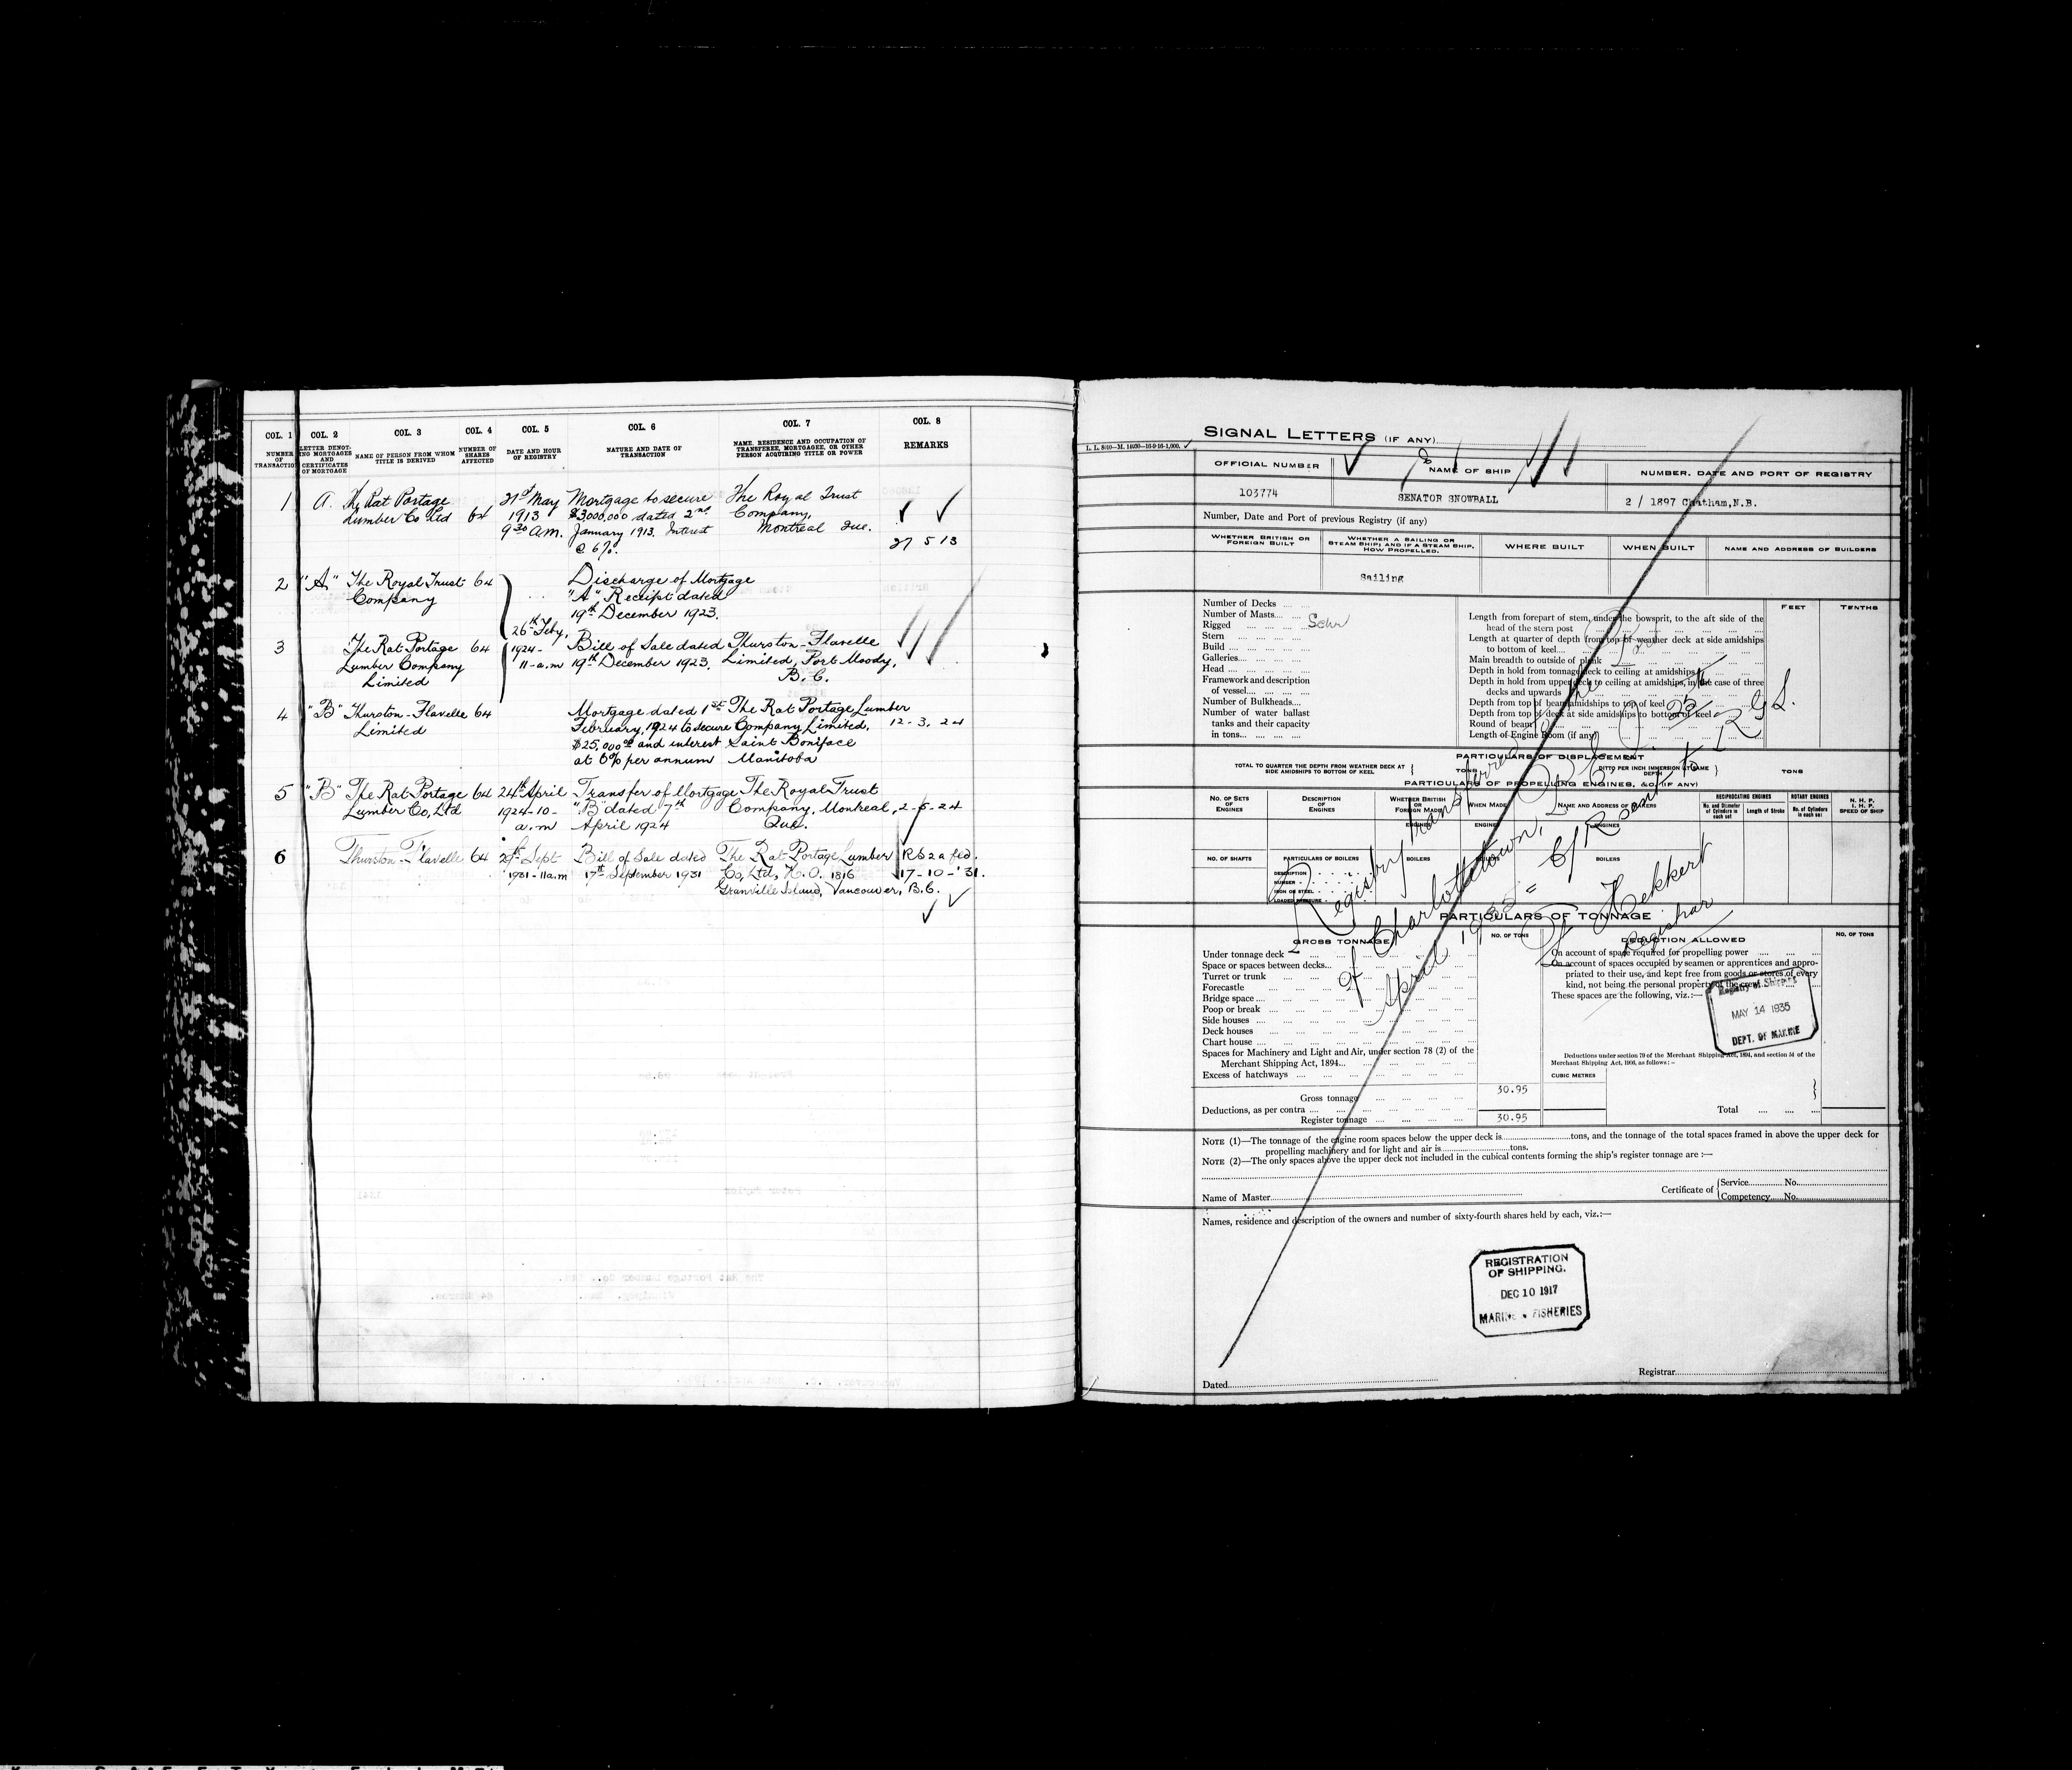 COL. 1
COL. 2
COL. 3
COL. 4
COL. 5
COL. 6
COL. 7
COL. 8
NUMBER OF TRANSACTION
LETTER DENOTING MORTGAGES AND CERTIFICATES OF MORTGAGE
NAME OF PERSON FROM WHOM TITLE IS DERIVED
NUMBER OF SHARES AFFECTED
DATE AND HOUR OF REGISTRY
NATURE AND DATE OF TRANSACTION
NAME, RESIDENCE AND OCCUPATION OF TRANSFEREE, MORTGAGEE, OR OTHER PERSON ACQUIRING TITLE OR POWER
REMARKS
1 A. The Rat Portage 21st May Mortgage to secure The Royal Trust
Lumber Co Ltd 64 1913 $3,000,000 dated 2nd Company,
9 30 a.m. January 1913. Interest Montreal Que.
@ 6%. 27 5 13
2 "A" The Royal Trust 64 Discharge of Mortgage
Company "A" Receipt dated
19th December 1923.
26th Feby,
3 The Rat Portage 64 1924- Bill of Sale dated Thurston-Flavelle
Lumber Company 11-a.m 19th December 1923. Limited, Port Moody,
Limited B.C.
4 "B" Thurston-Flavelle 64 Mortgage dated 1st The Rat Portage Lumber
Limited February, 1924 to secure Company Limited, 12-3, 24
$25,000 00 and interest Saint Boniface
at 6% per annum Manitoba
5 "B" The Rat Portage 64 24th April Transfer of Mortgage The Royal Trust
Lumber Co, Ltd 1924-10- "B" dated 7th Company, Montreal, 2-5-24
a.m April 1924 Que.
6 Thurston-Flavelle 64 29th Sept Bill of Sale dated The Rat Portage Lumber
1931-11a.m 17th September 1931 Co, Ltd, 1816 17-10-'31.
Granville Island, Vancouver, B.C.
SIGNAL LETTERS (IF ANY)
OFFICIAL NUMBER
NAME OF SHIP
NUMBER, DATE AND PORT OF REGISTRY
103774
SENATOR SNOWBALL
2 / 1897 Chatham,N.B.
Number, Date and Port of previous Registry (if any)
WHETHER BRITISH OR FOREIGN BUILT
WHETHER A SAILING OR STEAM SHIP; AND IF A STEAM SHIP, HOW PROPELLED.
WHERE BUILT
WHEN BUILT
NAME AND ADDRESS OF BUILDERS
Sailing
Number of Decks
Number of Masts
Rigged Schr
Stern
Build
Galleries
Head
Framework and description
of vessel
Number of Bulkheads
Number of water ballast
tanks and their capacity
in tons
FEET
TENTHS
Length from forepart of stem, under the bowsprit, to the aft side of the
head of the stern post
Length at quarter of depth from top of weather deck at side amidships
to bottom of keel
Main breadth to outside of plank
Depth in hold from tonnage deck to ceiling at amidships
Depth in hold from upper deck to ceiling at amidships, in the case of three
decks and upwards
Depth from top of beam amidships to top of keel
Depth from top of deck at side amidships to bottom of keel
Round of beam
Length of Engine Room (if any)
PARTICULARS OF DISPLACEMENT
TOTAL TO QUARTER THE DEPTH FROM WEATHER DECK AT
SIDE AMIDSHIPS TO BOTTOM OF KEEL
TONS
DITTO PER INCH IMMERSION AT SAME DEPTH
TONS
PARTICULARS OF PROPELLING ENGINES, &C. (IF ANY)
NO. OF SETS OF ENGINES
DESCRIPTION OF ENGINES
WHETHER BRITISH OR FOREIGN MADE
WHEN MADE
NAME AND ADDRESS OF MAKERS
RECIPROCATING ENGINES
No. and Diameter of Cylinders in each set
Length of Stroke
ROTARY ENGINES
No. of Cylinders in each set
N. H. P.
I. H. P.
SPEED OF SHIP
ENGINES
NO. OF SHAFTS
PARTICULARS OF BOILERS
BOILERS
BOILERS
DESCRIPTION
NUMBER
IRON OR STEEL
LOADED PRESSURE
Registry transferred to the Port
of Charlottetown, P.E.I.
April 1935
Registrar
PARTICULARS OF TONNAGE
GROSS TONNAGE
NO. OF TONS
DEDUCTION ALLOWED
NO. OF TONS
Under tonnage deck
Space or spaces between decks
Turret or trunk
Forecastle
Bridge space
Poop or break
Side houses
Deck houses
Chart house
Spaces for Machinery and Light and Air, under section 78 (2) of the
Merchant Shipping Act, 1894
Excess of hatchways
Gross tonnage 30.95
Deductions, as per contra
Register tonnage 30.95
On account of space required for propelling power
On account of spaces occupied by seamen or apprentices and appro-
priated to their use, and kept free from goods or stores of every
kind, not being the personal property of the crew
These spaces are the following, viz.:—
Registry of Shipping
MAY 14 1935
DEPT. OF MARINE
Deductions under section 79 of the Merchant Shipping Act, 1894, and section 54 of the
Merchant Shipping Act, 1906, as follows:—
CUBIC METRES
Total
NOTE (1)—The tonnage of the engine room spaces below the upper deck is tons, and the tonnage of the total spaces framed in above the upper deck for
propelling machinery and for light and air is tons.
NOTE (2)—The only spaces above the upper deck not included in the cubical contents forming the ship's register tonnage are :—
Name of Master
Certificate of Service No.
Competency No.
Names, residence and description of the owners and number of sixty-fourth shares held by each, viz.:—
REGISTRATION
OF SHIPPING.
DEC 10 1917
MARINE & FISHERIES
Dated
Registrar